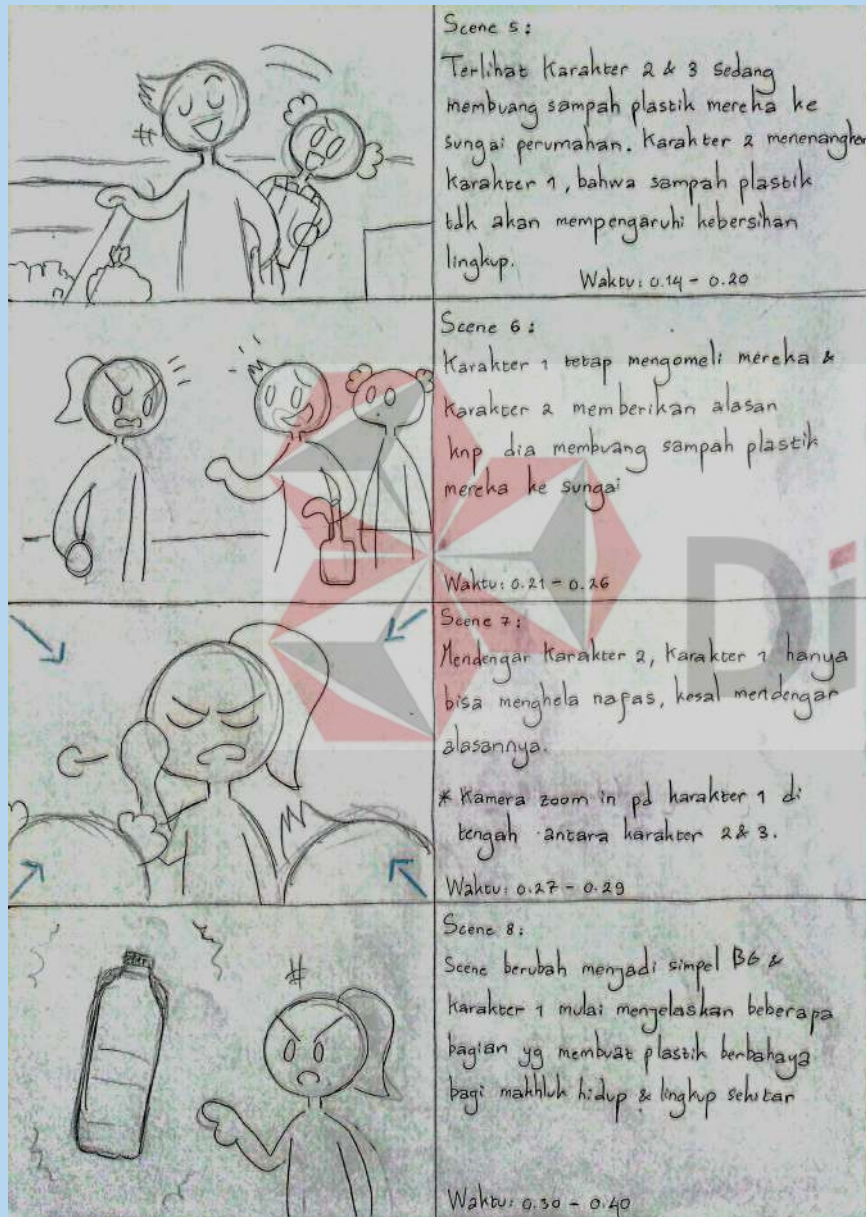 Scene 5:
Terlihat Karakter 2 & 3 sedang
membuang sampah plastik mereka ke
sungai perumahan. Karakter 2 menenangkan
karakter 1, bahwa sampah plastik
tdk akan mempengaruhi kebersihan
lingkup.
Waktu: 0.14 - 0.20
Scene 6:
Karakter 1 tetap mengomeli mereka &
karakter 2 memberikan alasan
knp dia membuang sampah plastik
mereka ke sungai
Waktu: 0.21 - 0.26
Scene 7:
Mendengar Karakter 2, Karakter 1 hanya
bisa menghela nafas, kesal mendengar
alasannya.
* Kamera zoom in pd karakter 1 di
tengah antara karakter 2 & 3.
Waktu: 0.27 - 0.29
Scene 8:
Scene berubah menjadi simpel BG &
karakter 1 mulai menjelaskan beberapa
bagian yg membuat plastik berbahaya
bagi makhluk hidup & lingkup sekitar
Waktu: 0.30 - 0.40
Di